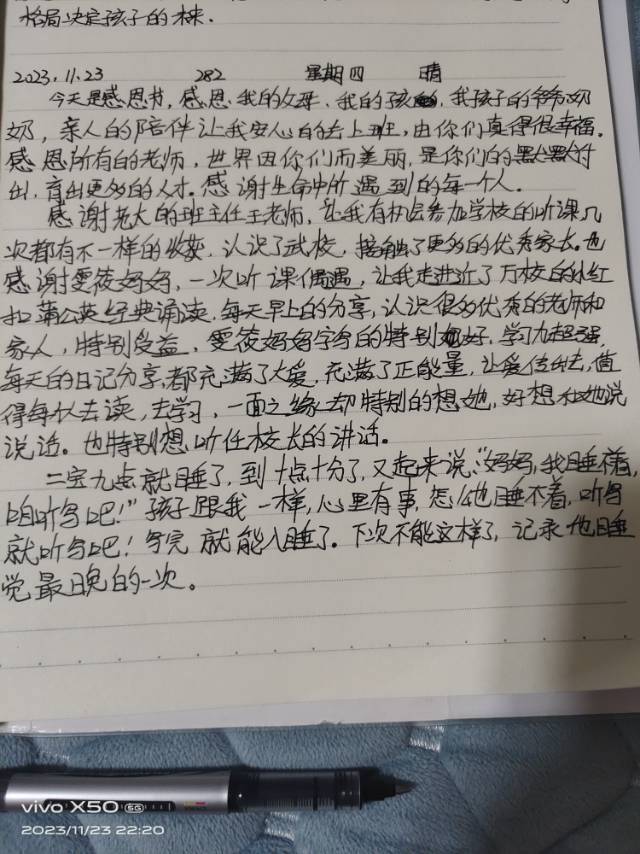 格局决定孩子的未来.
2023.11.23 282 星期四 晴
今天是感恩节,感恩我的父母.我的孩,我孩子的爷爷奶
奶,亲人的陪伴让我安心的去上班,由你们真得很幸福.
感恩所有的老师,世界因你们而美丽,是你们的默默付
出,育出更多的人才.感谢生命中所遇到的每一个人.
感谢老大的班主任王老师,让我有机会参加学校的听课几
次都有不一样的收获,认识了武校,接触了更多的优秀家长.也
感谢雯筱妈妈,一次听课偶遇,让我走进近了万校的小红
扣蒲公英经典诵读.每天早上的分享,认识很多优秀的老师和
家人,特别受益.雯筱妈妈字写的特别好,学习力超强,
每天的日记分享,都充满了大爱,充满了正能量,让爱传出去,值
得每个人去读,去学习,一面之缘却特别的想她,好想和她说
说话。也特别想听任校长的讲话。
二宝九点就睡了,到十点十分了,又起来说:"妈妈,我睡不着,
咱听写吧!"孩子跟我一样,心里有事,怎么也睡不着,听写
就听写吧!写完就能入睡了.下次不能这样了,记录他睡
觉最晚的一次。
vivo X50 5G
2023/11/23 22:20